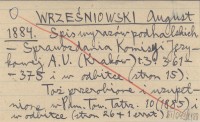 WRZEŚNIOWSKI August
1884. Spis wyrazów podhalskich
- Sprawozdania Komisyi Języ-
kowej A.U. (Kraków) t. 3 361-
- 375 i w odbitce (stron 15).
Toż przerobione i uzupeł-
nione w Pam. Tow. Tatrz. 10 (1885) i
w odbitce (stron 26 + 1 errat)